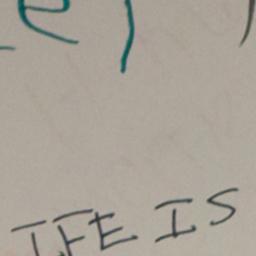 e)
IFE IS